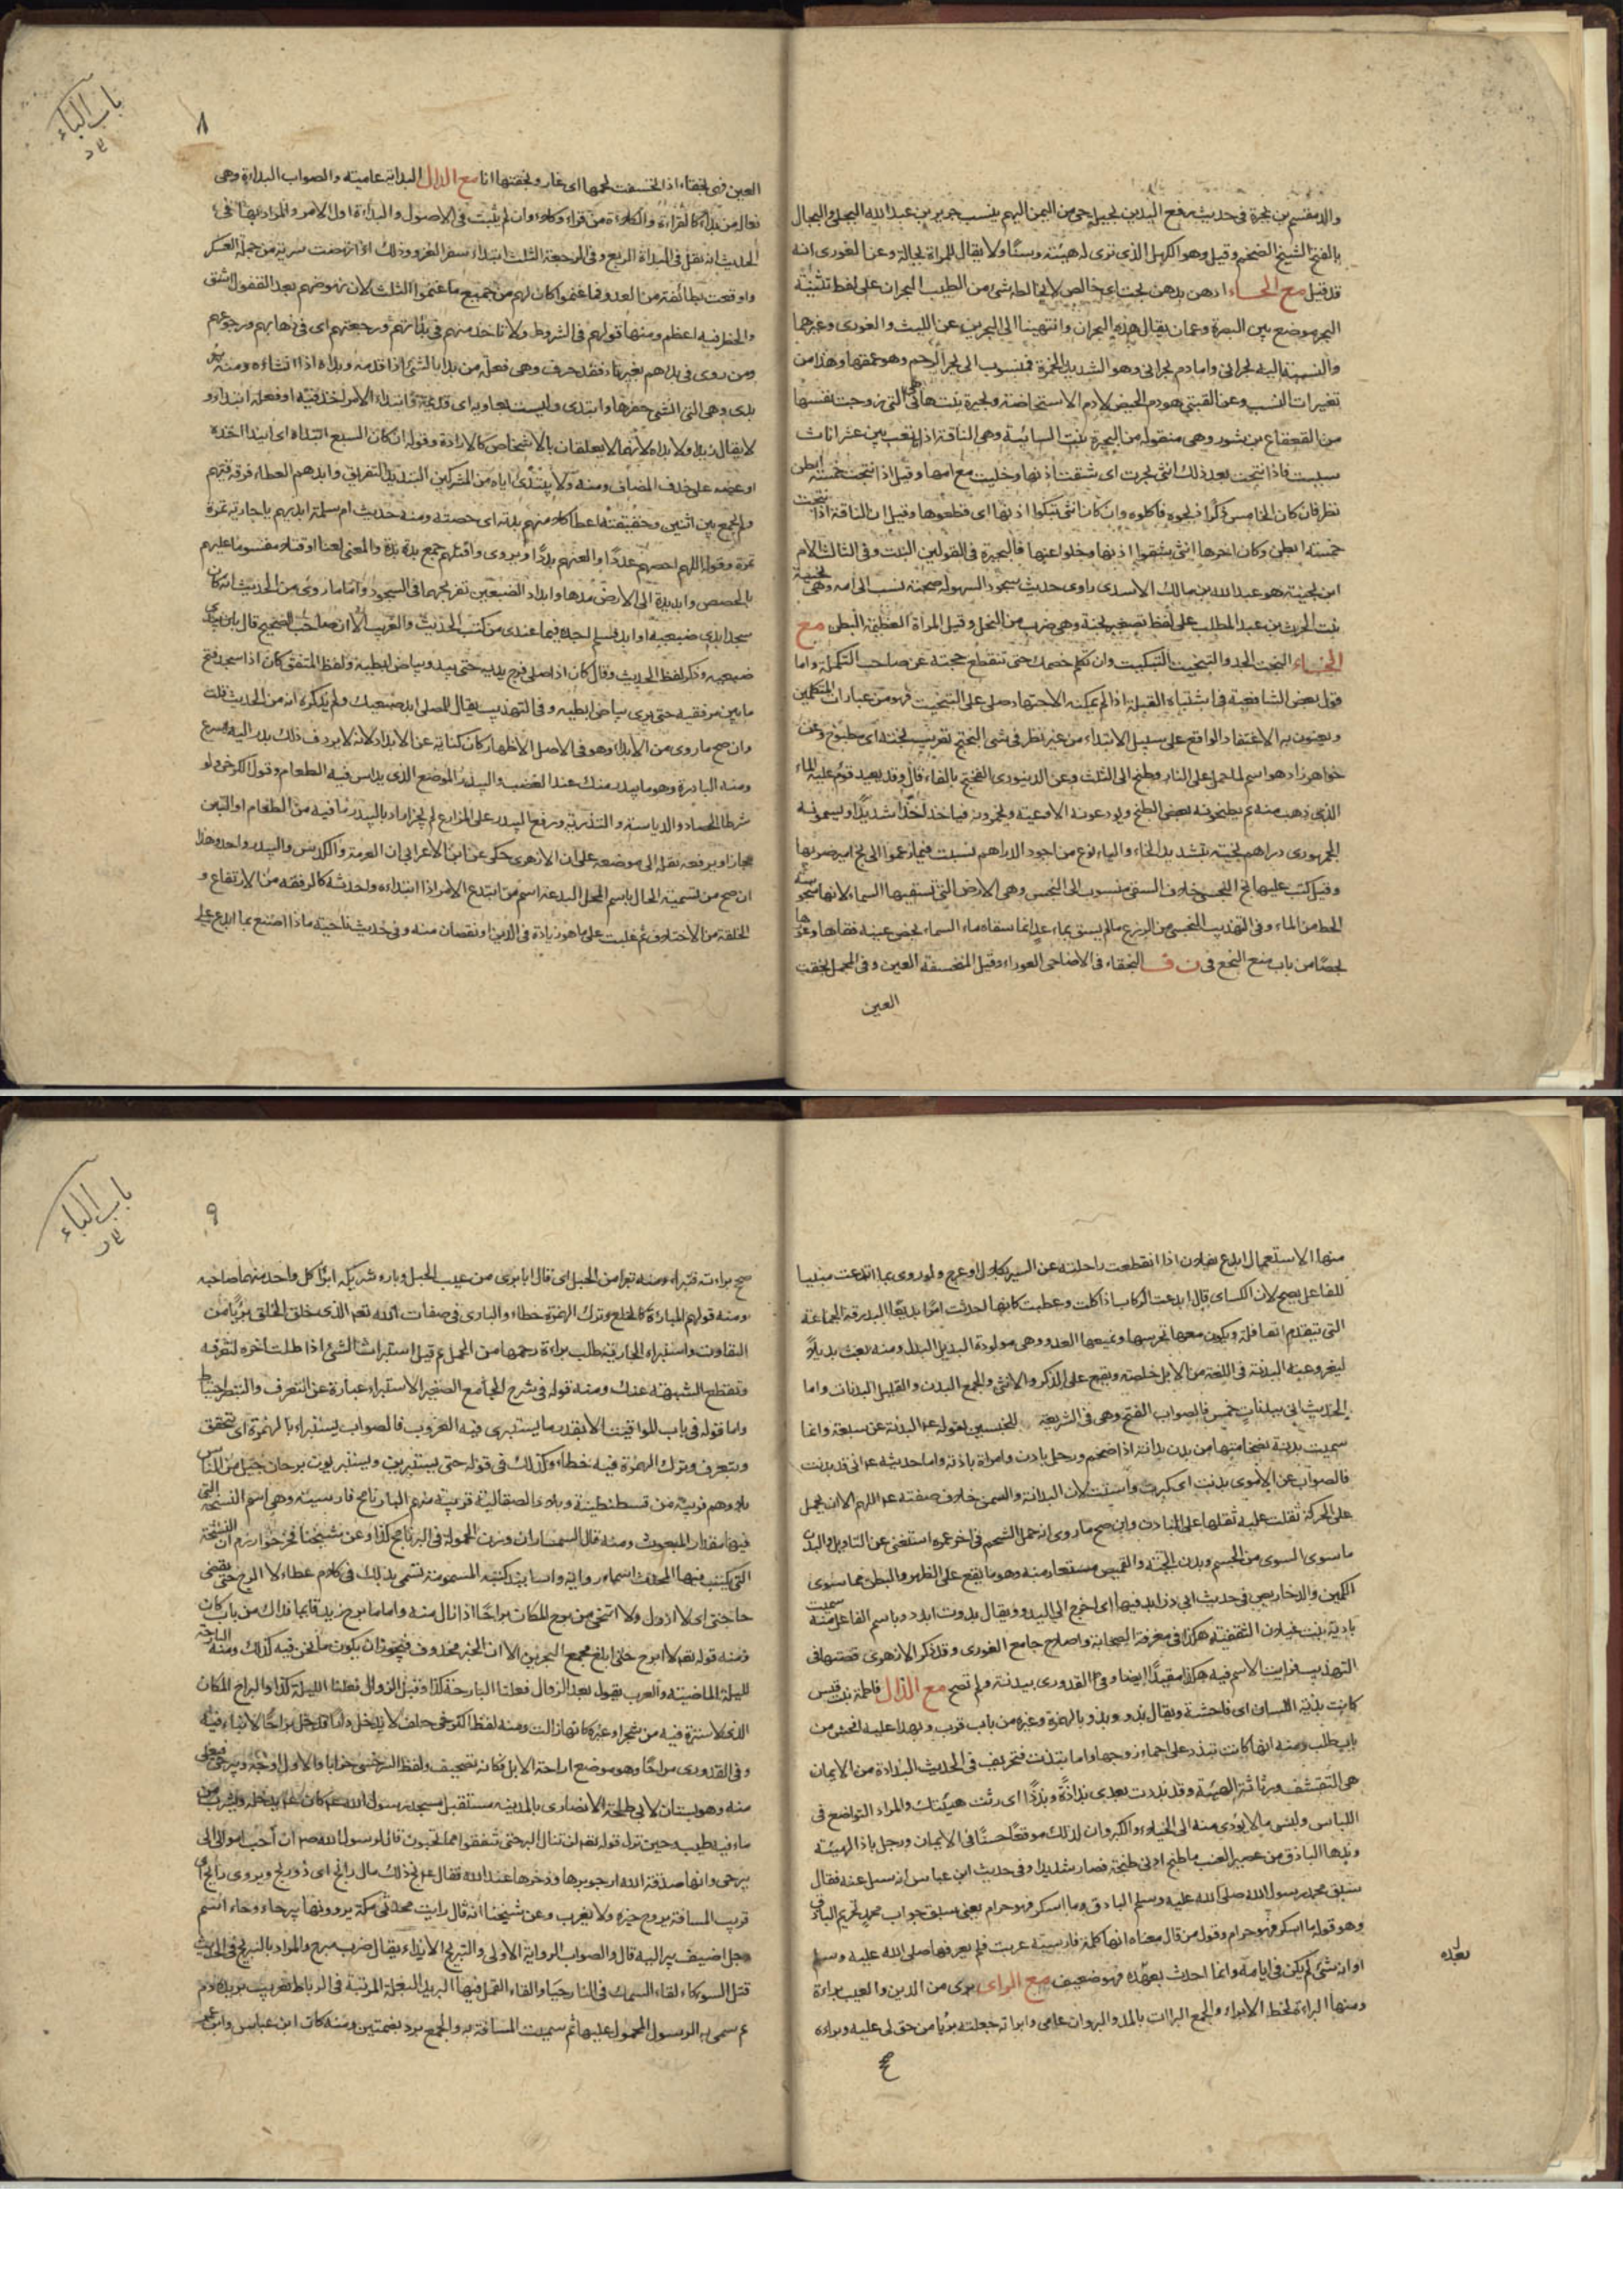 والد مقسم بن بجرة في حديث رفع اليدين بجيلة حي من اليمن اليهم ينسب جرير بن عبد الله البجلي والبجال
بالفتح الشيخ الضخم وقيل وهو الكهل الذي ترى له هيئة وسنا ولا يقال للمراة بجالة وعن الغوري انه
قد قيل مع الحاء ادهن بدهن بحت اي خالص لا يخالطه شئ من الطيب البحران على لفظ تثنية
البحر موضع بين البصرة وعمان يقال هذه البحران وانتهينا الى البحرين عن الليث والغوري وغيرهما
والنسبة اليه بحراني واما دم بحراني وهو الشديد الحمرة فمنسوب الى بحر الرحم وهو عمقها وهذا من
تغيرات النسب وعن القتبي هو دم الحيض لا دم الاستحاضة وبحيرة بنت هانئ هي التي زوجت نفسها
من القعقاع بن شور وهي منقولة من البحيرة بنت السائبة وهي الناقة اذا تابعت بين عشر اناث
سيبت فاذا نتجت بعد ذلك انثى بحرت اي شقت اذنها وخليت مع امها وقيل اذا نتجت خمسة ابطن
نظر فان كان الخامس ذكرا ذبحوه فاكلوه وان كان انثى بتكوا اذنها اي قطعوها وقيل ان الناقة اذا نتجت
خمسة ابطن وكان اخرها انثى شقوا اذنها وخلوا عنها فالبحيرة في القولين البنت وفي الثالث الام
ابن بحينة هو عبد الله بن مالك الاسدي راوي حديث سجود السهو له صحبة نسب الى امه وهي بحينة
بنت الحرث بن عبد المطلب على لفظ تصغير بحنة وهي ضرب من النخل وقيل المراة العظيمة البطن مع
الخاء البخت الجد والتبخيت التبكيت وان تكلم خصمك حتى تنقطع حجته عن صاحب التكملة واما
قول بعض الشافعية في اشتباه القبلة اذا لم يمكنه الاجتهاد صلى على التبخيت فهو من عبارات المتكلمين
ويعنون به الاعتقاد الواقع على سبيل الابتداء من غير نظر في شئ البختج تعريب بخته اي مطبوخ وعن
خواهر زاده هو اسم لما حمل على النار وطبخ الى الثلث وعن الدينوري الفختج بالفاء قال وقد يعيد قوم عليه الماء
الذي ذهب منه ثم يطبخونه بعض الطبخ ويودعونه الاوعية ويخمرونه فياخذ اخذا شديدا ويسمونه
الجمهوري دراهم بخية بتشديد الخاء والياء نوع من اجود الدراهم نسبت فيما زعموا الى بخ امير ضربها
وقيل كتب عليها بخ البخس خلاف السقي منسوب الى البخس وهي الارض التي تسقيها السماء لانها مبخوسة
الحظ من الماء وفي التهذيب البخسي من الزرع ما لم يسق بماء عد انما سقاه ماء السماء بخص عينه فقاها وعورها
بخصا من باب منع البخع في ن ف البخقاء في الاضاحي العوراء وقيل المنخسفة العين وفي المجمل بخقت
العين
باب الباء
٨
العين فهي بخقاء اذا انخسفت لحمها اي غار وبخقتها انا مع الدال البداية عامية والصواب البداءة وهي
فعالة من بدأ كالقراءة والكلاءة من قرأ وكلأ وان لم يثبت في الاصول والبدأة اول الامر والمراد بها في
الحديث انه نفل في البدأة الربع وفي الرجعة الثلث ابتداء سفر الغزو وذلك اذا نهضت سرية من جملة العسكر
واوقعت بطائفة من العدو فما غنموا كان لهم من جميع ما غنموا الثلث لان نهوضهم بعد القفول اشق
والخطر فيه اعظم ومنها قولهم في الشروط ولا تاخذ منهم في بدأتهم ورجعتهم اي في ذهابهم ورجوعهم
ومن روى في بداهم بغير تاء فقد حرف وهي فعلة من بدا بالشئ اذا قدمه وبداه اذا انشاءه ومنه بئر
بدي وهي التي انشئ حفرها وابتدي وليست بعاديه اي قديمة وابتداء الامر اخذ فيه او فعله ابتداء و
لا يقال زيدا ولا بداه لانهما لا يعلقان بالاشخاص كالارادة وقوله ان كان السبع ابتداه اي ابتدا اخذه
او عضه على حذف المضاف ومنه ولا يبتدئ اياه من المشركين التبديد التفريق وابدهم العطاء فرقه فيهم
ولم يجمع بين اثنين وحقيقته اعطا كلا منهم بدته اي حصته ومنه حديث ام سلمة ابديهم يا جارية تمرة
تمرة وقوله اللهم احصهم عددا والعنهم بددا ويروى واقتلهم جمع بدة والمعنى لعنا او قتلا مقسوما عليهم
بالحصص وابد يده الى الارض مدها وابداد الضبعين تفريجهما في السجود واما ما روي من الحديث انه كان اذا
سجد ابدى ضبعيه او ابد فلم اجده فيما عندي من كتب الحديث والغريب الا ان صاحب الصحيح قال باب يبدي
ضبعيه وذكر لفظ الحديث وقال كان اذا صلى فرج يديه حتى يبدو بياض ابطيه ولفظ المتفق كان اذا سجد فتح
ما بين مرفقيه حتى يرى بياض ابطيه وفي التهذيب يقال للمصلي ابد ضبعيك ولم يذكر انه من الحديث قلت
وان صح ما روي من الابداء وهو في الاصل الاظهار كان كناية عن الابداد لانه لا يردف ذلك بدر اليه اسرع
ومنه البادرة وهو ما يبدر منك عند الغضب والبيدر الموضع الذي يداس فيه الطعام وقول الكرخي ولو
شرط الحصاد والدياسة والتذرية ورفع البيدر على المزارع لم يجز اراد بالبيدر ما فيه من الطعام او التبن
مجازا وبرفعه نقله الى موضعه على ان الازهري حكى عن ابن الاعرابي ان العرمة والكدس والبيدر واحد وهذا
ان صح من تسمية الحال باسم المحل البدعة اسم من ابتدع الامر اذا ابتداه واحدثه كالرفعة من الارتفاع و
الخلفة من الاختلاف ثم غلبت على ما هو زيادة في الدين او نقصان منه وفي حديث ناجية ماذا اصنع بما ابدع علي
منها الاستعمال ابدع بفلان اذا انقطعت راحلته عن السير بكلال او عرج ولو روى بما ابتدعت مبنيا
للفاعل يصح لان الكسائي قال ابدعت الركاب اذا كلت وعطبت كانها احدثت امرا بديعا البدرقة الجماعة
التي تتقدم القافلة ويكون معها تحرسها وتمنعها العدو وهي مولدة البديل البدل ومنه بعث بديلا
ليغزو عنه البدنة في اللغة من الابل خاصة ويقع على الذكر والانثى والجمع البدن والقليل البدنات واما
الحديث اتي ببدنات خمس فالصواب الفتح وهي في الشريعة للجنسين لقوله عم البدنة عن سبعة وانما
سميت بدنة لضخامتها من بدن بدانة اذا ضخم ورجل بادن وامراة بادنة واما حديثه عم اني قد بدنت
فالصواب عن الاموي بدنت اي كبرت واسننت لان البدانة والسمن خلاف صفته عم اللهم الا ان يحمل
على الحركة ثقلت عليه ثقلها على البادن وان صح ما روي انه حمل الشحم في اخر عمره استغنى عن التاويل والبدن
ما سوى الشوى من الجسم وبدن الجبة والقميص مستعار منه وهو ما يقع على الظهر والبطن مما سوى
الكمين والدخاريص في حديث ابي ذر ابد فيها اي اخرج الى البدو ويقال بدوت ابدو وباسم الفاعلة منه سميت
بادية بنت غيلان الثقفية هكذا في معرفة الصحابة واصلاح جامع الغوري وقد ذكر الازهري قصتها في
التهذيب فرايت الاسم فيه هكذا مقيدا ايضا وفي القدوري ببدنة ولم تصح مع الذال فاطمة بنت قيس
كانت بذية اللسان اي فاحشة ويقال بذو وبذؤ بالهمزة وغيره من باب قرب وبهذا عليه افحش من
باب طلب ومنه انها كانت تبذو على احماء زوجها واما تبذت فتحريف في الحديث البذاذة من الايمان
هي التقشف ورثاثة الهيئة وقد بذذت بعدي بذاذة وبذذا اي رثت هيئتك والمراد التواضع في
اللباس ولبس ما لا يؤدي منه الى الخيلاء والكبر وان لذلك موقعا حسنا في الايمان ورجل باذ الهيئة
وبذها الباذق من عصير العنب ما طبخ ادنى طبخة فصار شديدا وفي حديث ابن عباس انه سئل عنه فقال
سبق محمد رسول الله صلى الله عليه وسلم الباذق وما اسكر فهو حرام يعني سبق جواب محمد تحريم الباذق
وهو قوله ما اسكر فهو حرام وقول من قال معناه انها كلمة فارسية عربت فلم يعرفها صلى الله عليه وسلم
او انه شئ لم يكن في ايامه وانما احدث بعده فهو ضعيف مع الراى برئ من الدين والعيب براءة
ومنها البراءة لخط الابراء والجمع البراات بالمد والبروات عامي وابراته جعلته بريا من حق لي عليه وبراه
بعده
باب الباء
٩
صح براءته فتبراء ومنه تبرا من الحبل اي قال انا برئ من عيب الحبل وبارء شريكه ابرا كل واحد منهما صاحبه
ومنه قولهم المبارءة كالخلع وترك الهمزة خطاء والبارئ في صفات الله تعم الذي خلق الخلق بريا من
التفاوت واستبراء الجارية طلب براءة رحمها من الحمل ثم قيل استبرات الشئ اذا طلبت اخره لتعرفه
وتقطع الشبهة عنك ومنه قوله في شرح الجامع الصغير الاستبراء عبارة عن التعرف والتبصر احتياطا
واما قوله في باب المواقيت الا بقدر ما يستبرى فيه الغروب فالصواب يستبراء بالهمزة اي يتحقق
ويتعرف وترك الهمزة فيه خطاء وكذلك في قوله حتى يستبرين ويستبريون برجان جيل من الناس
بلادهم قريبة من قسطنطينية وبلاد الصقالبة قريبة منهم البارنامج فارسية وهي اسم النسخة التي
فيها مقدار المبعوث ومنه قال السمسار ان وزن الحمولة في البرنامج كذا وعن شيخنا فخر خوارزم ان النسخة
التي يكتب فيها المحدث اسماء رواته واسانيد كتبه المسموعة تسمى بذلك في كلام عطاء لا ابرح حتى يقضي
حاجتي اي لا ازول ولا اتنحى من برح المكان براحا اذا زال منه واما ما برح زيد قايما فذاك من باب كان
ومنه قوله تعم لا ابرح حتى ابلغ مجمع البحرين الا ان الخبر محذوف فيجوز ان يكون ما نحن فيه كذلك ومنه البارحة
لليلة الماضية والعرب تقول بعد الزوال فعلنا البارحة كذا وقبل الزوال فعلنا الليلة كذا والبراح المكان
الذي لا سترة فيه من شجر او غيره كانها زالت ومنه لفظ الكرخي حلف لا يدخل دارا فدخل براحا لا بناء فيه
وفي القدوري مراحا وهو موضع اراحة الابل فكانه تصحيف ولفظ السرخسي خرابا والاول اوجه وبيرحى فيعلى
منه وهو بستان لابي طلحة الانصاري بالمدينة مستقبل مسجد رسول الله عم كان عم يدخله ويشرب من
ماء فيه طيب حين نزل قوله تعم لن تنالوا البر حتى تنفقوا مما تحبون قال لرسول الله صم ان احب اموالي الي
بيرحى وانها صدقة الله ارجو برها وذخرها عند الله فقال عم بخ ذلك مال رابح اي ذو ربح ويروى رايح اي
قريب المسافة يروح خيره ولا يغرب وعن شيخنا انه قال رايت محدثي مكة يروونها بير حاء وحاء اسم
رجل اضيف بير اليه قال والصواب الرواية الاولى والتبريح الايذاء يقال ضرب مبرح والمراد بالتبريح في الحديث
قتل السوء كالقاء السمك في النار حيا والقاء القمل فيها البريد البغلة المرتبة في الرباط تعريب بريده دم
ثم سمي به الرسول المحمول عليها ثم سميت المسافة به والجمع برد بضمتين ومنه كان ابن عباس وابن عمر